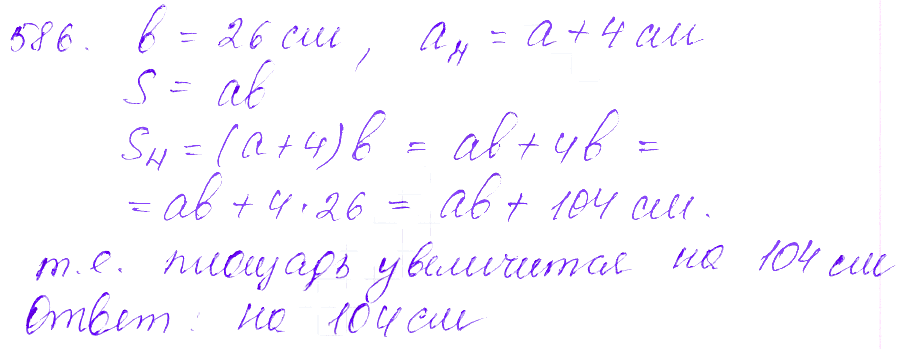 586. b = 26 см, aн = a + 4 см
S = ab
Sн = (a + 4) b = ab + 4b =
= ab + 4 · 26 = ab + 104 см.
т.е. площадь увеличится на 104 см
Ответ: на 104 см